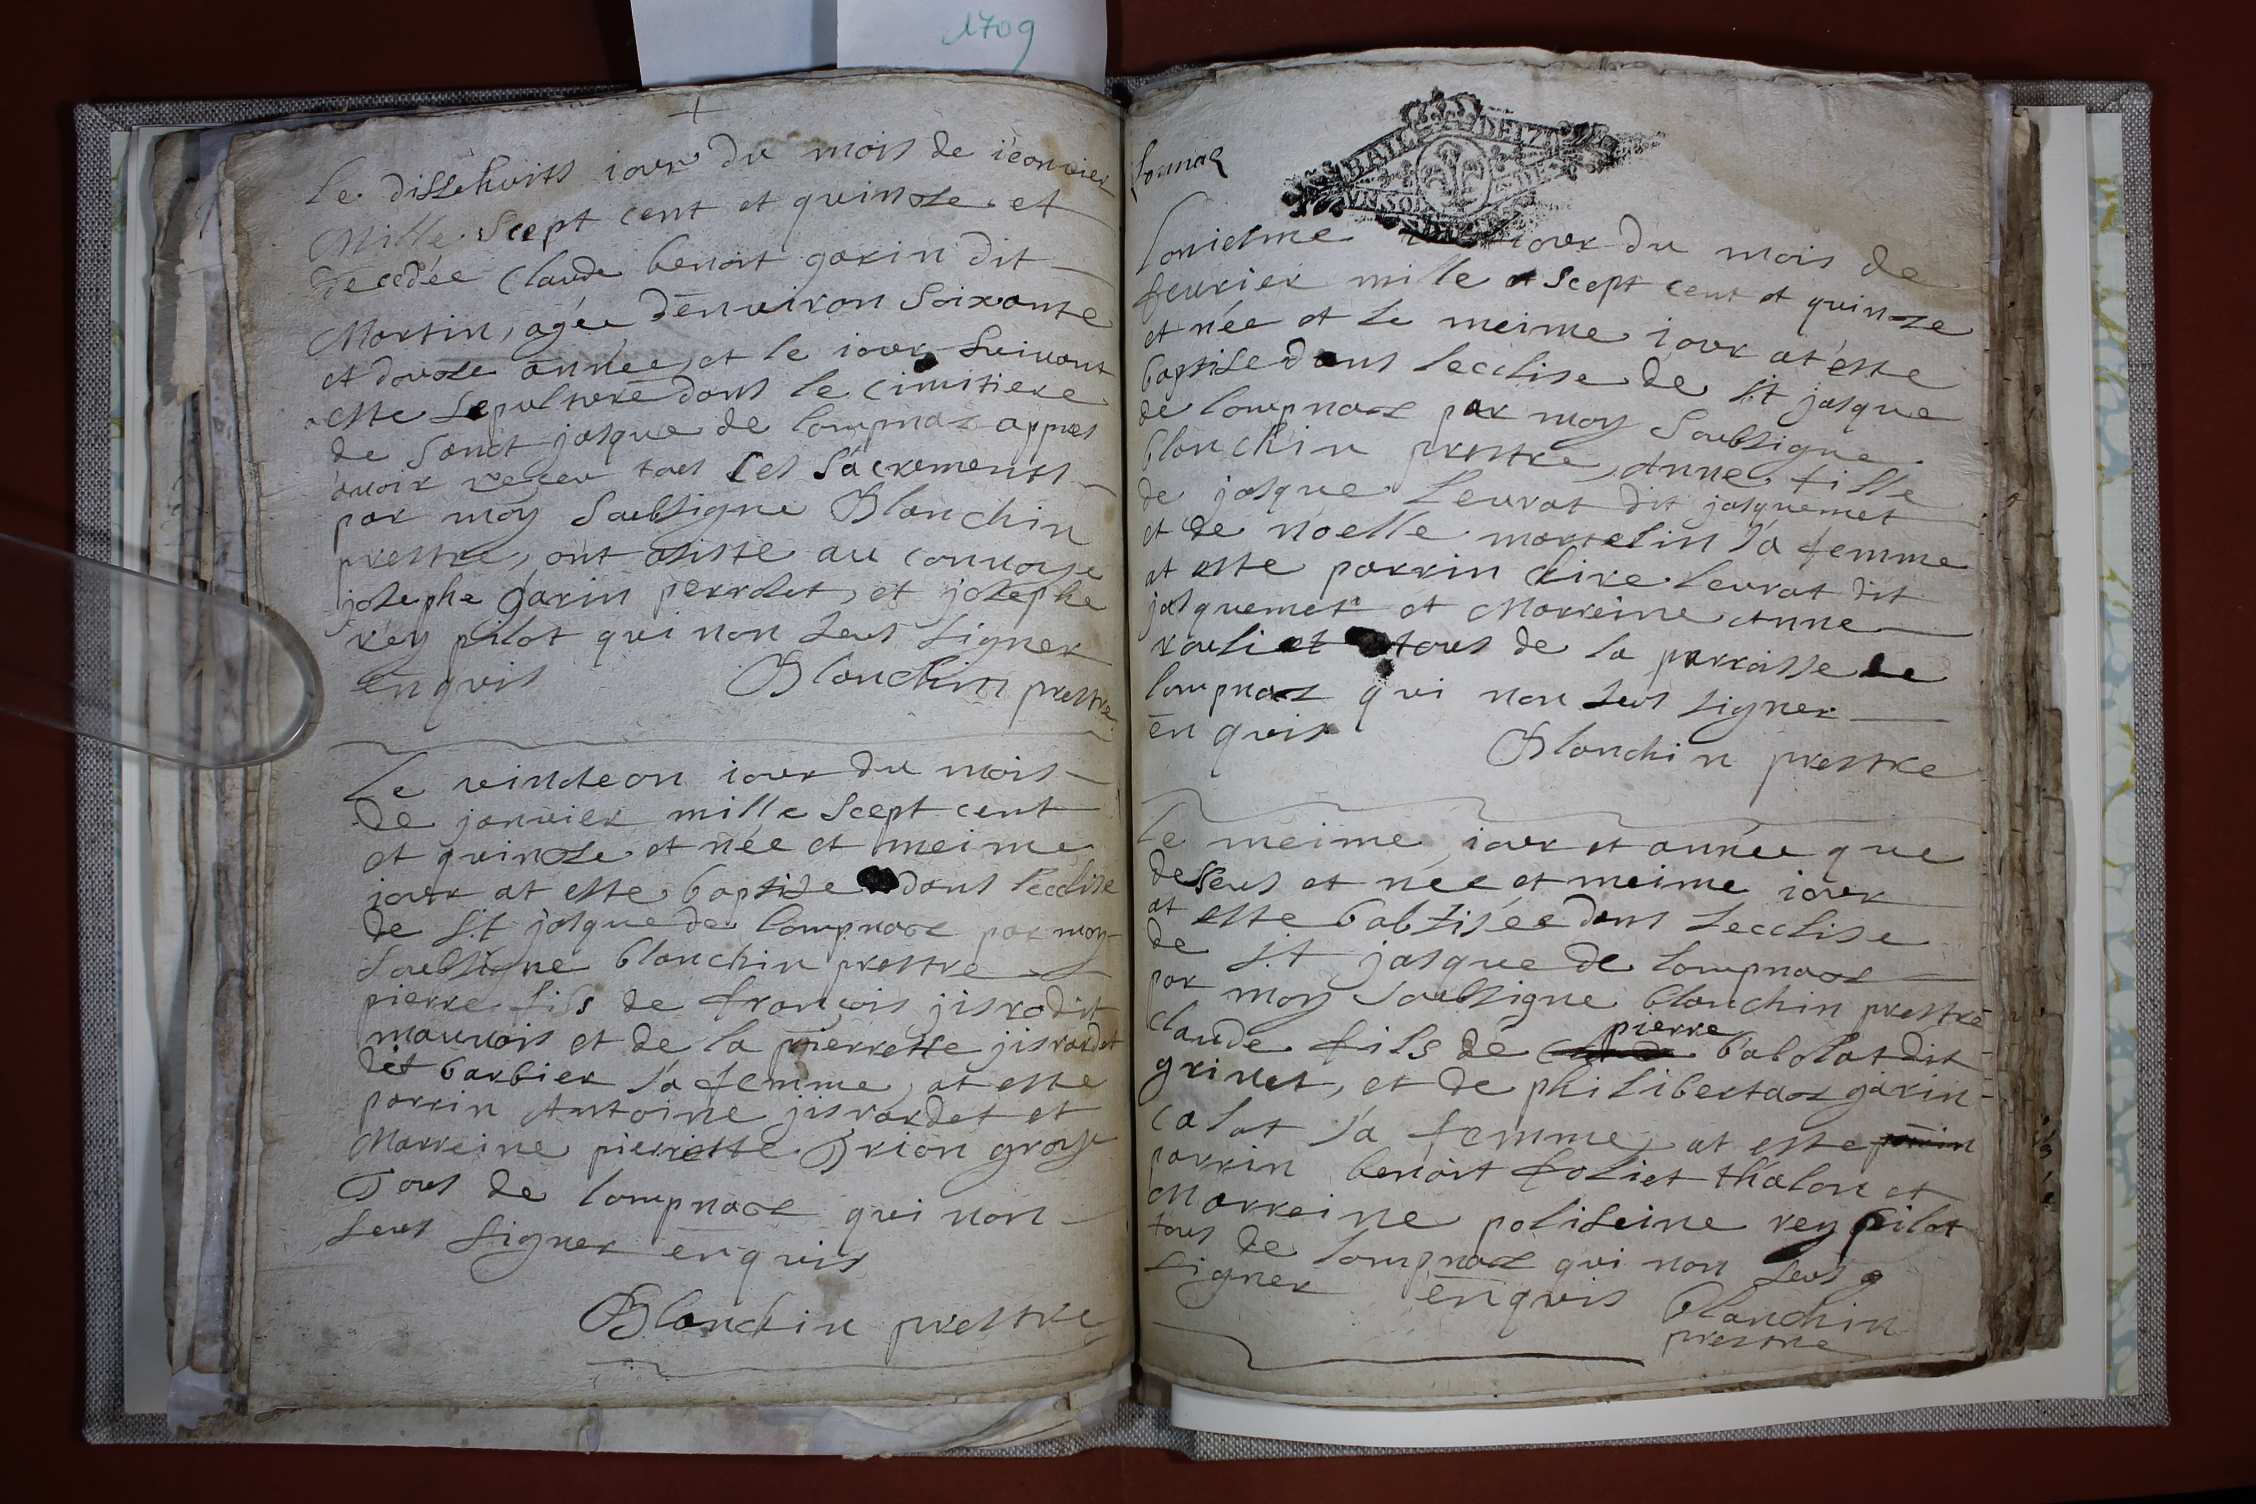 1709
Le dissehuits iour du mois de ieanvier
Mille scept cent et quinze et
decedée Claude benoit garin dit
Martin, agée d'enuiron soixante
et douze année, et le iour suiuant
este sepulture dans le cimitiere
de sanct jasque de lompnaz appres
auoir reçeu tous ses sacrements
par moy soubsigne Blanchin
prestre, ont asiste au conuoye
josephe garin perrolet, et josephe
rey pilot qui non seus signer
enquis Blanchin prestre
Le vincteon iour du mois
de januier mille scept cent
et quinze et née et meime
iour at este baptize dans lecclise
de s.t jasque de lompnaz par moy
soubsigne blanchin prestre
pierre fils de françois jisrodit
mauuais et de la pierrette jisrardet
dit barbier sa femme, at este
parrin Antoine jisrardet et
Marreine pierrette Brion
Tous de lompnaz qui non
seus signer enquis
Blanchin prestre
Lonnaz
BAIL DETZ
VN SOL DE
Lonieime iour du mois de
feurier mille et scept cent et quinze
et née et le meime iour at este
baptise dans lecclise de s.t jasque
de lompnaz par moy soubsigne
blanchin prestre, Anne fille
de jasque leurat dit jasquemet
et de noelle martelin sa femme
at este parrin clire leurat dit
jasquemet et Marreine Anne
rouliet tous de la parroisse de
lompnaz qui non seus signer
enquis
Blanchin prestre
Le meime iour et année que
desseus et née et meime iour
at este babtisée dans lecclise
de s.t jasque de lompnaz
par moy soubsigne blanchin prestre
claude fils de pierre babolat dit
grinet, et de philibertaz garin
calat sa femme, at este parrin
parrin benoit foliet thalon et
Marreine poliseine rey pilot
tous de lompnaz qui non seus
signer enquis blanchin
prestre